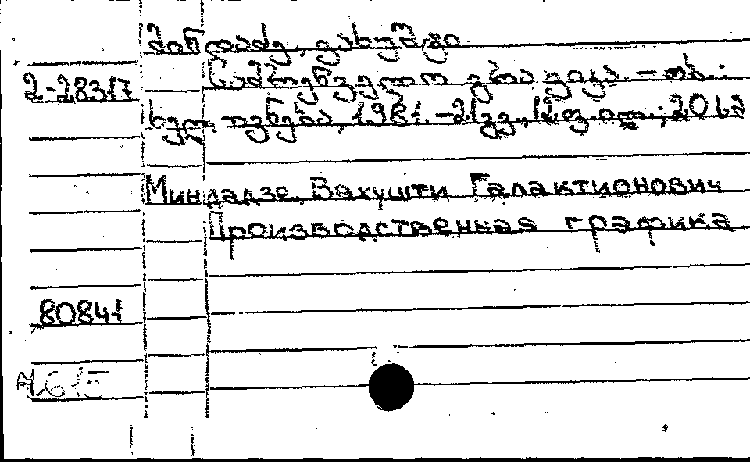 მინდაძე, ვახუშტი
2-28317 საწარმოო გრაფიკა. – თბ.:
ხელოვნება, 1981. – 21 გვ., 12 ფ. ილ.; 20 სმ
Миндадзе, Вахушти Галактионович
Производственная графика
80841